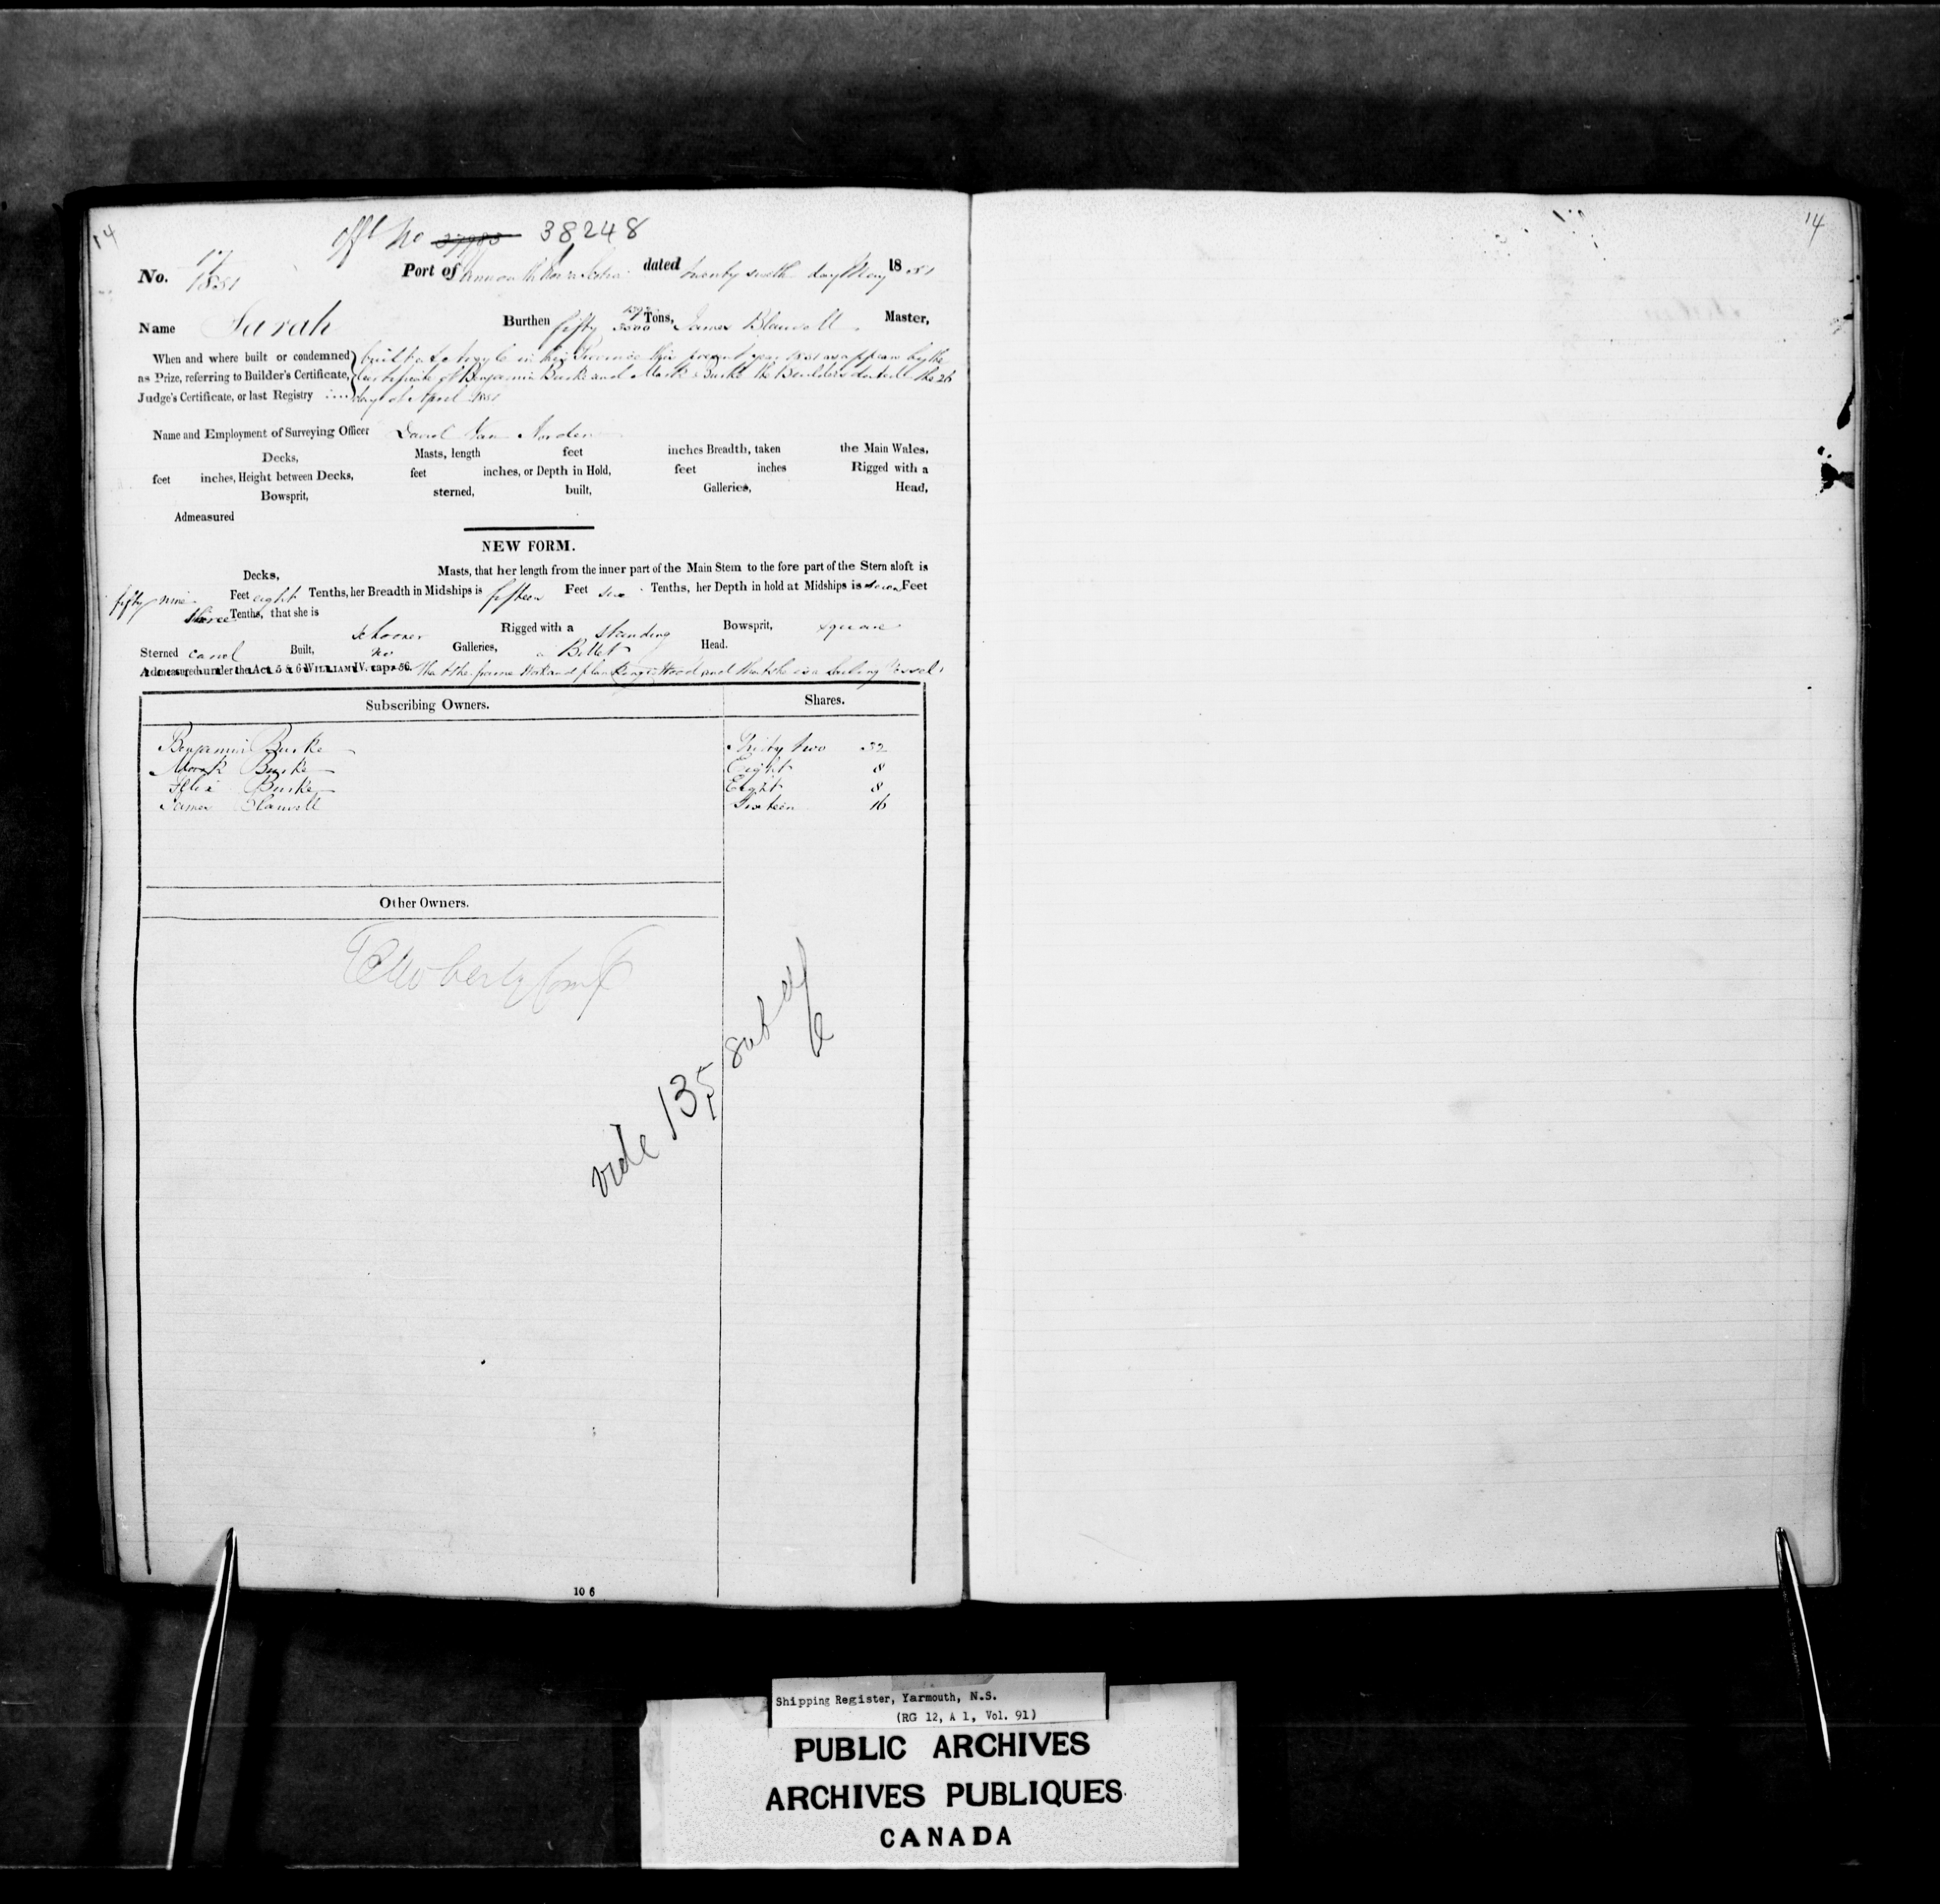 14
offl No 37983 38248
No. 17/1851 Port of Yarmouth Nova Scotia dated twenty sixth day May 1851
Name Sarah Burthen fifty 3500 Tons, James Blauvelt Master,
When and where built or condemned built at Argyle in this Province this present year 1851 as appears by the
as Prize, referring to Builder's Certificate, Certificate of Benjamin Burke and Mark Burke the Builders dated the 26
Judge's Certificate, or last Registry day of April 1851
Name and Employment of Surveying Officer Daniel Van Norden
Decks, Masts, length feet inches Breadth, taken the Main Wales,
feet inches, Height between Decks, feet inches, or Depth in Hold, feet inches Rigged with a
Bowsprit, sterned, built, Galleries, Head,
Admeasured
NEW FORM.
Decks, Masts, that her length from the inner part of the Main Stem to the fore part of the Stern aloft is
fifty nine Feet eight Tenths, her Breadth in Midships is fifteen Feet six Tenths, her Depth in hold at Midships is seven Feet
three Tenths, that she is
schooner Rigged with a standing Bowsprit, square
Sterned carvel Built, no Galleries, a Billet Head.
Admeasured under the Act 5 & 6 WILLIAM IV. cap. 56. that the frame work and planking is Wood and that she is a Sailing Vessel
Subscribing Owners. Shares.
Benjamin Burke Thirty two 32
Mark Burke Eight 8
Burke Eight 8
James Blauvelt Sixteen 16
Other Owners.
vide 135 sub of
106
14
Shipping Register, Yarmouth, N.S.
(RG 12, A 1, Vol. 91)
PUBLIC ARCHIVES
ARCHIVES PUBLIQUES
CANADA